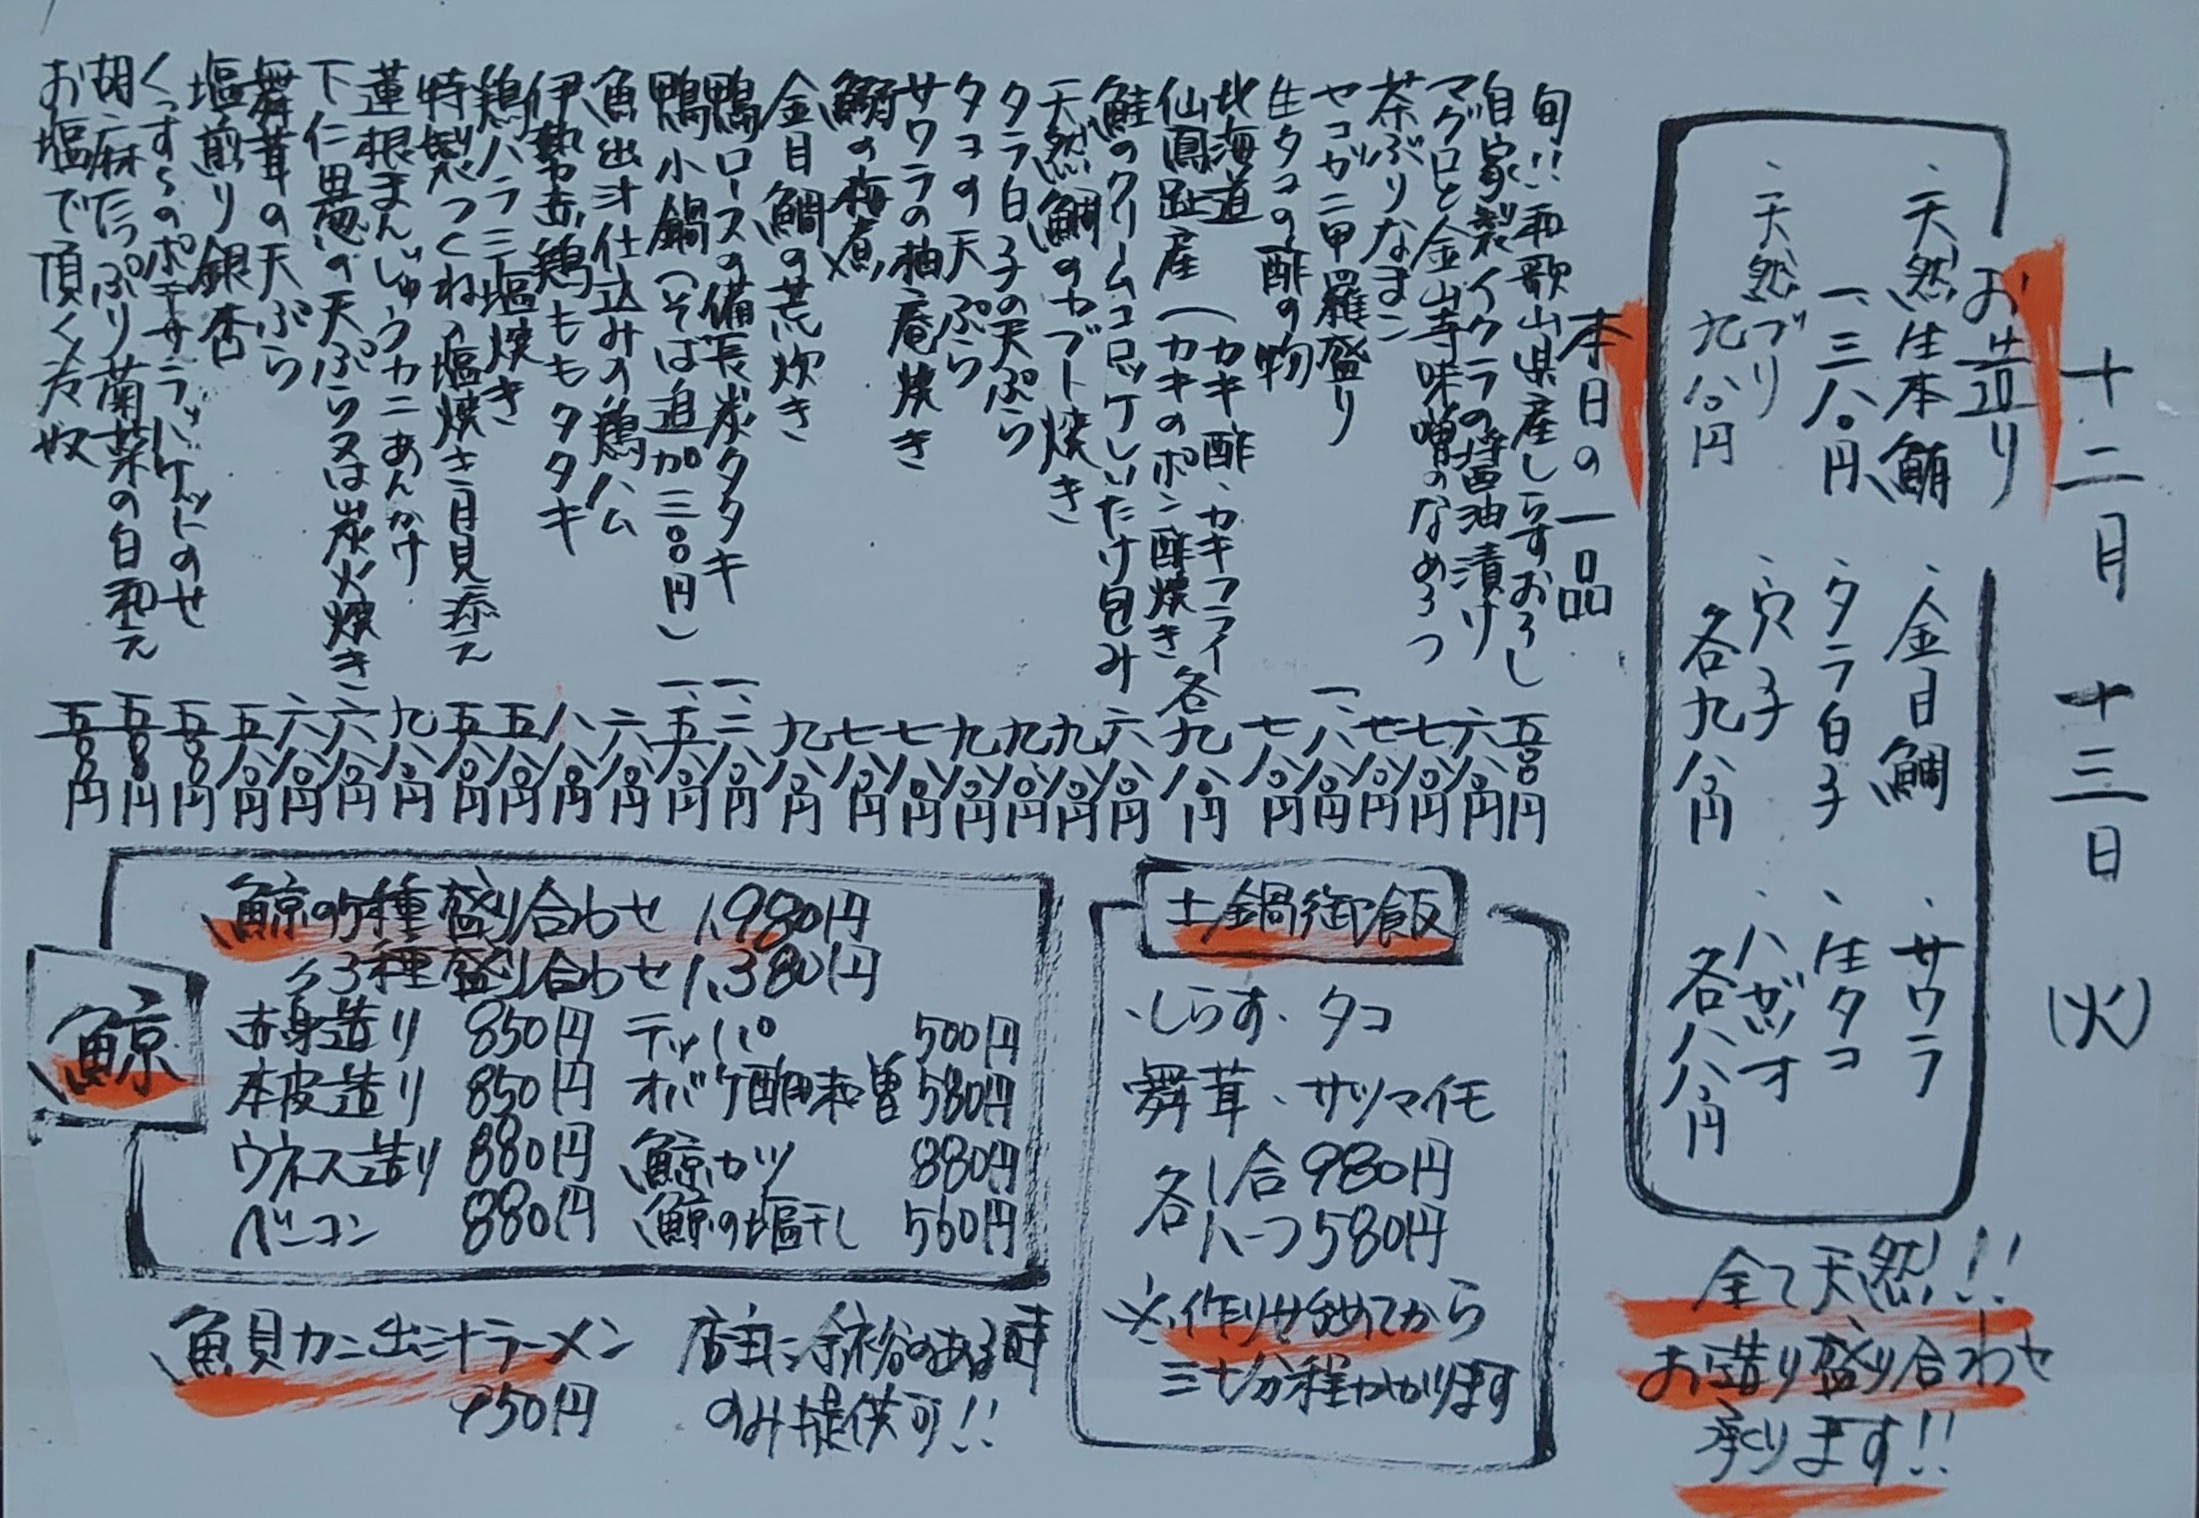 十二月十三日(火)
お造り
・天然生本鮪
一、三八〇円
・天然ブリ
九八〇円
・金目鯛
・タラ白子
・穴子
各九八〇円
・サワラ
・生タコ
・ハガツオ
各八八〇円
全て天然!!
お造り盛り合わせ
承ります!!
本日の一品
旬!!和歌山県産しらすおろし 五〇〇円
自家製イクラの醤油漬け 六八〇円
マグロと金山寺味噌のなめろう 七八〇円
茶ぶりなまこ 七八〇円
セコガニ甲羅盛り 一、八八〇円
生タコの酢の物 七八〇円
北海道
仙鳳趾産
(カキ酢・カキフライ
(カキのポン酢焼き
各九八〇円
鮭のクリームコロッケしいたけ包み 六八〇円
天然鯛のカブト焼き 九八〇円
タラ白子の天ぷら 九八〇円
タコの天ぷら 九八〇円
サワラの柚庵焼き 七八〇円
鰯の梅煮 七八〇円
金目鯛の荒炊き 九八〇円
鴨ロースの備長炭タタキ 一、二八〇円
鴨小鍋(そば追加三〇〇円) 一、五八〇円
魚出汁仕込みの鶏ハム 六八〇円
伊勢赤鶏ももタタキ 八八〇円
鶏ハラミ塩焼き 五八〇円
特製つくねの塩焼き月見添え 五八〇円
蓮根まんじゅうカニあんかけ 九八〇円
下仁田葱の天ぷら又は炭火焼き 六八〇円
舞茸の天ぷら 六八〇円
塩煎り銀杏 五八〇円
くずしのポテサラバゲットのせ 五〇〇円
胡麻たっぷり菊菜の白和え 五〇〇円
お塩で頂く冷奴 五〇〇円
土鍋御飯
・しらす・タコ
舞茸・サツマイモ
各1合980円
ハーフ580円
※作り始めてから
三十分程かかります
鯨
鯨の5種盛り合わせ 1,980円
〃3種盛り合わせ 1,380円
赤身造り 850円 テッパ 500円
本皮造り 850円 オバケ酢味噌 580円
ウネス造り 880円 鯨カツ 880円
ベーコン 880円 鯨の塩干し 560円
魚貝カニ出汁ラーメン
950円
店主に余裕のある時
のみ提供可!!